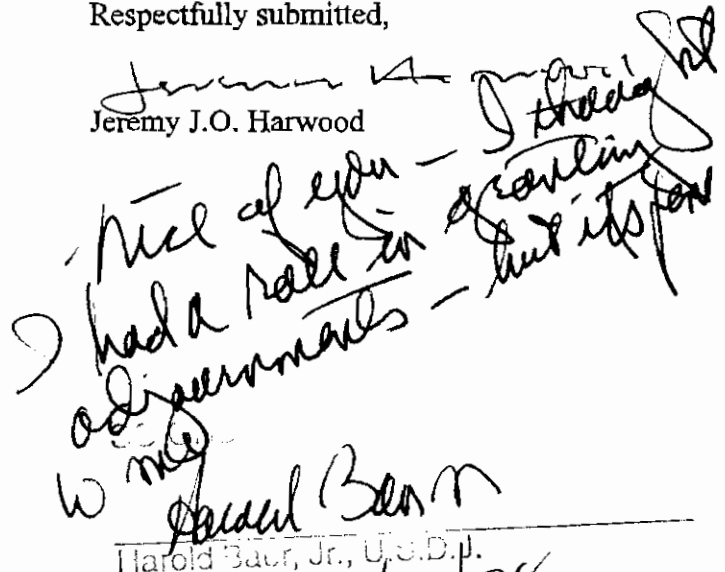 Respectfully submitted,
Jeremy J.O. Harwood
Nice of you – I thought
I had a role in granting
adjournments – but its
to me
Harold Baer Jr
Harold Baer, Jr., U.S.D.J.